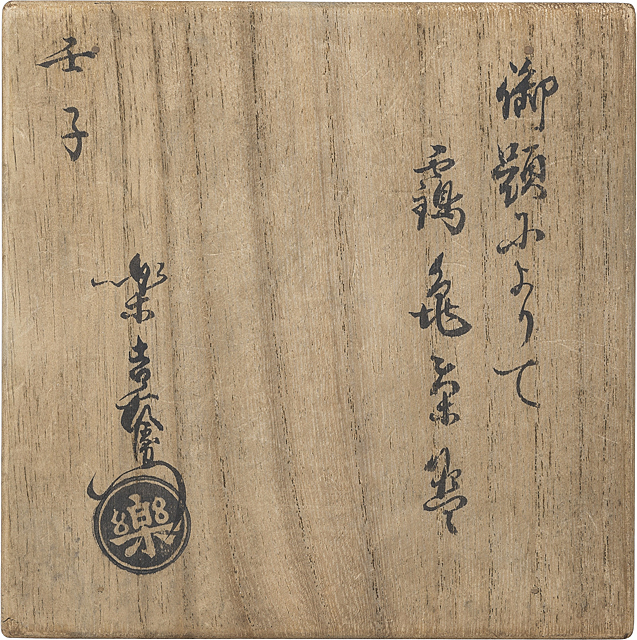 御題によりて
鶴亀茶碗
壬子
楽吉左衛門
樂